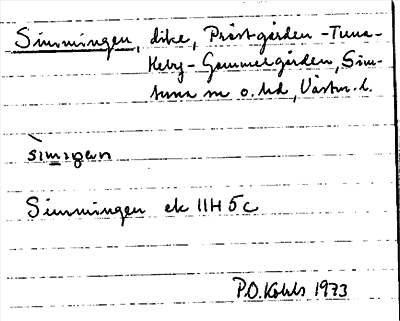 Simmingen, dike, Prästgården - Tuna-
Keby - Gammelgården, Sim-
tuna sn o. hd, Västm. l.
Simmingen ek 11H 5c
P.O. 1973